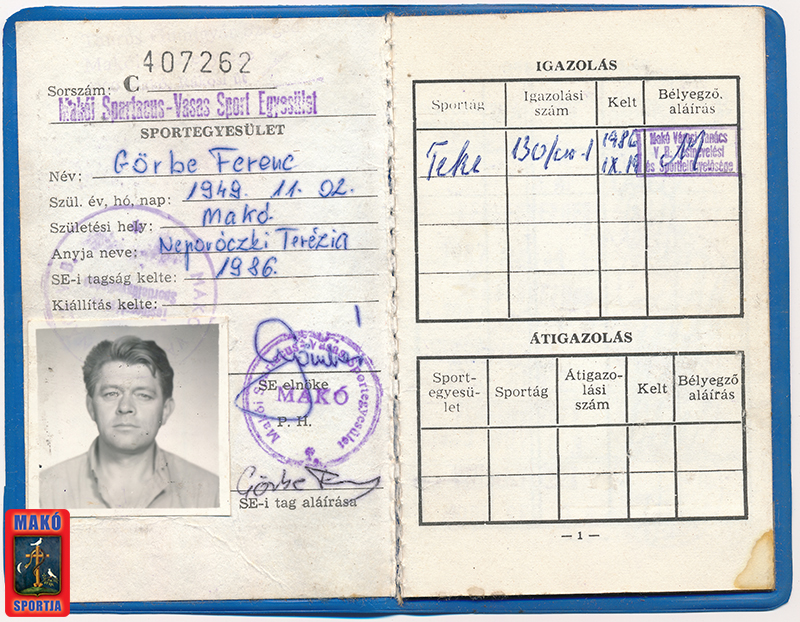 407262
Sorszám: C
Makói Spartacus-Vasas Sport Egyesület
SPORTEGYESÜLET
Név: Görbe Ferenc
Szül. év, hó, nap: 1949. 11. 02.
Születési hely: Makó.
Anyja neve: Neporóczki Terézia
SE-i tagság kelte: 1986.
Kiállítás kelte:
SE elnöke
Makói Spartacus-Vasas Sportegyesület
MAKÓ
P. H.
Görbe
SE-i tag aláírása
MAKÓ
SPORTJA
IGAZOLÁS
Sportág Igazolási szám Kelt Bélyegző, aláírás
Teke 1986 IX. Makó Városi Tanács
V. B. Testnevelési
és Sportfelügyelősége
ÁTIGAZOLÁS
Sport-egyesü-let Sportág Átigazo-lási szám Kelt Bélyegző aláírás
— 1 —